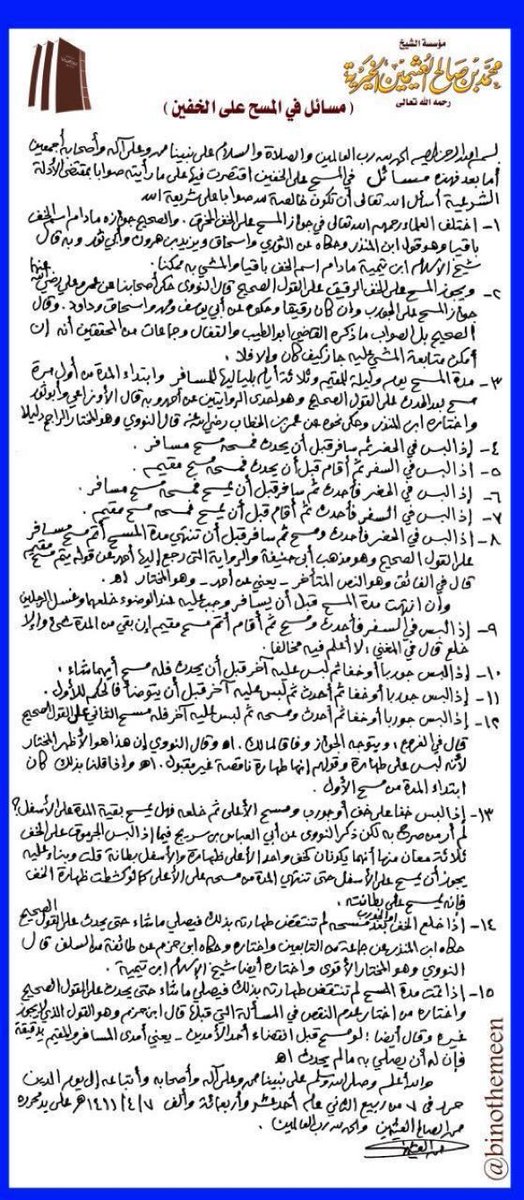 مؤسسة الشيخ
محمد بن صالح العثيمين الخيرية
رحمه الله تعالى
( مسائل في المسح على الخفين )
بسم الله الرحمن الرحيم الحمد لله رب العالمين والصلاة والسلام على نبينا محمد وعلى آله وأصحابه أجمعين
أما بعد فهذه مسائل في المسح على الخفين اقتصرت فيها على ما رأيته صوابا بمقتضى الأدلة
الشرعية أسأل الله تعالى أن تكون خالصة لله صوابا على شريعة الله
١- اختلف العلماء رحمهم الله تعالى في جواز المسح على الخف المخرق. والصحيح جوازه مادام اسم الخف
باقيا وهو قول ابن المنذر وحكاه عن الثوري واسحاق ويزيد بن هرون وأبي ثور وبه قال
شيخ الإسلام ابن تيمية مادام اسم الخف باقيا والمشي به ممكنا.
٢- ويجوز المسح على الخف الرقيق على القول الصحيح قال النووي حكى أصحابنا عن عمر وعلي رضي الله عنهما
جواز المسح على الجورب وإن كان رقيقا وحكوه عن أبي يوسف ومحمد واسحاق وداود. وقال
الصحيح بل الصواب ما ذكره القاضي أبو الطيب والقفال وجماعات من المحققين أنه إن
أمكن متابعة المشي عليه جاز كيف كان وإلا فلا.
٣- مدة المسح يوم وليلة للمقيم وثلاثة أيام بلياليها للمسافر وابتداء المدة من أول مرة
مسح بعد الحدث على القول الصحيح وهو احدى الروايتين عن أحمد وبه قال الأوزاعي وأبو ثور
واختاره ابن المنذر وحكى نحوه عن عمر بن الخطاب رضي الله عنه قال النووي وهو المختار الراجح دليلا
٤- إذا لبس في الحضر ثم سافر قبل أن يحدث فمسحه مسح مسافر.
٥- إذا لبس في السفر ثم أقام قبل أن يحدث فمسحه مسح مقيم.
٦- إذا لبس في الحضر فأحدث ثم سافر قبل أن يمسح فمسحه مسح مسافر.
٧- إذا لبس في السفر فأحدث ثم أقام قبل أن يمسح فمسحه مسح مقيم.
٨- إذا لبس في الحضر فأحدث ومسح ثم سافر قبل أن تنتهي مدة المسح أتم مسح مسافر
على القول الصحيح وهو مذهب أبي حنيفة والرواية التي رجع إليها أحمد عن قوله يتم مسح مقيم
قال في الفائق وهو النص المتأخر - يعني عن أحمد - وهو المختار اهـ.
وإن انتهت مدة المسح قبل أن يسافر وجب عليه عند الوضوء خلعهما وغسل الرجلين
٩- إذا لبس في السفر فأحدث ومسح ثم أقام أتم مسح مقيم إن بقي من المدة شيء وإلا
خلع قال في المغني: لا أعلم فيه مخالفا.
١٠- إذا لبس جوربا أو خفا ثم لبس عليه آخر قبل أن يحدث فله مسح أيهما شاء.
١١- إذا لبس جوربا أو خفا ثم أحدث ثم لبس عليه آخر قبل أن يتوضأ فالحكم للأول.
١٢- إذا لبس جوربا أو خفا ثم أحدث ومسحه ثم لبس عليه آخر فله مسح الثاني على القول الصحيح
قال في الفروع: ويتوجه الجواز وفاقا لمالك. اهـ وقال النووي إن هذا هو الأظهر المختار
لأنه لبس على طهارة وقولهم إنها طهارة ناقصة غير مقبول. اهـ وإذا قلنا بذلك كان
ابتداء المدة من مسح الأول.
١٣- إذا لبس خفا على خف أو جورب ومسح الأعلى ثم خلعه فهل يمسح بقية المدة على الأسفل؟
لم أر من صرح به لكن ذكر النووي عن أبي العباس بن سريج فيما إذا لبس الجرموق على الخف
ثلاثة معان منها أنهما يكونان كخف واحد الأعلى ظهارة والأسفل بطانة قلت وبناء عليه
يجوز أن يمسح على الأسفل حتى تنتهي المدة من مسحه على الأعلى كما لو كشطت ظهارة الخف
فإنه يمسح على بطانته.
١٤- إذا خلع الخف أو الجورب بعد مسحه لم تنتقض طهارته بذلك فيصلي ما شاء حتى يحدث على القول الصحيح
حكاه ابن المنذر عن جماعة من التابعين واختاره وحكاه ابن حزم عن طائفة من السلف قال
النووي وهو المختار الأقوى واختاره أيضا شيخ الإسلام ابن تيمية.
١٥- إذا تمت مدة المسح لم تنتقض طهارته بذلك فيصلي ما شاء حتى يحدث على القول الصحيح
واختاره من اختار عدم النقض في المسألة التي قبلها قال ابن حزم وهو القول الذي لا يجوز
غيره وقال أيضا: لو مسح قبل انقضاء أحد الأمدين - يعني أمدي المسافر والمقيم بدقيقة
فإن له أن يصلي به ما لم يحدث اهـ
والله أعلم وصلى الله وسلم على نبينا محمد وعلى آله وأصحابه وأتباعه إلى يوم الدين
حرر في ٧ من ربيع الثاني عام أحد عشر وأربعمائة وألف ١٤١١/٤/٧هـ على يد محرره
محمد الصالح العثيمين والحمد لله رب العالمين.
@binothemeen